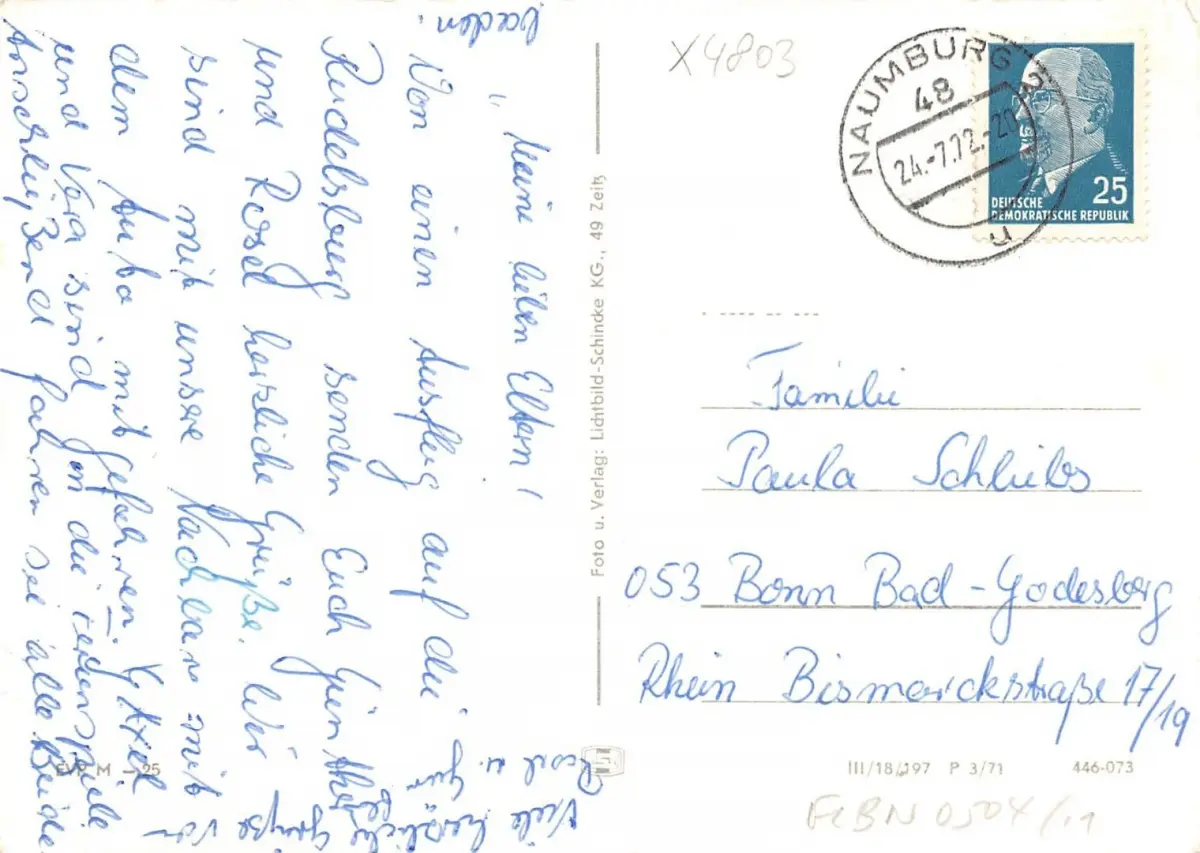 Meine lieben Eltern!
Von einen Ausflug auf die
Rudelsburg senden Euch Günther
und Rosel herzliche Grüße. Wir
sind mit unsere Nachbarn mit
dem Auto mitgefahren. Axel
und Vera sind in die Ferienspiele
Anschließend fahren sie alle Beide
baden.
Viele herzliche Grüße von
Rosel u.
Foto u. Verlag: Lichtbild-Schincke KG., 49 Zeitz
X4803
NAUMBURG 2
48
24.-7.72.-20
u
25
DEUTSCHE
DEMOKRATISCHE REPUBLIK
Familie
Paula Schliebs
053 Bonn Bad-Godesberg
Rhein Bismarckstraße 17/19
EVP M -,25
III/18/197 P 3/71 446-073